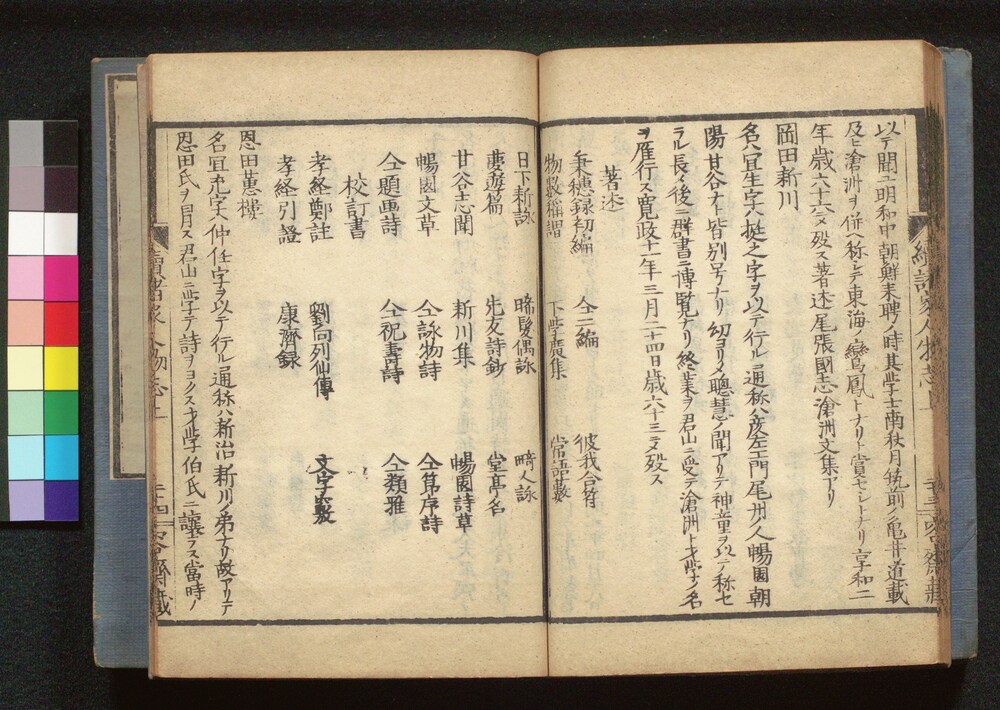 以テ聞ユ明和中朝鮮来聘ノ時其学士南秋月筑前ノ亀井道載
及ヒ滄洲ヲ併ヘ称シテ東海ノ鸞鳳トナリト賞セシトナリ享和二
年歳六十六ニメ殁ス著述尾張國志滄洲文集アリ
岡田新川
名ハ宜生字ハ挺之字ヲ以テ行ル通称ハ彦左エ門尾州ノ人暢園朝
陽甘谷ナト皆別号ナリ幼ヨリメ聰慧ノ聞アリテ神童ヲ以テ称セ
ラル長メ後ニ群書ニ博覧ナリ終業ヲ君山ニ受テ滄洲ト才学ノ名
ヲ雁行ス寛政十一年三月二十四日歳六十三ニメ殁ス
著述
秉穂録初編 仝二編 彼我合符
物数称謂 下学廣集 常語藪
日下新詠 晞髪偶詠 畸人詠
慶遊篇 先友詩鈔 堂亭名
甘谷志聞 新川集 暢園詩草
暢園文草 仝詠物詩 仝算序詩
仝題画詩 仝祝壽詩 仝類雅
校訂書
孝経鄭註 劉向列仙傳 文字藪
孝経引證 康濟録
恩田蕙樓
名宜充字ハ仲任字ヲ以テ行ル通称ハ新治新川ノ弟ナリ故アリテ
恩田氏ヲ冒ス君山ニ学テ詩ヲヨクス才学伯氏ニ讓ラス當時ノ
續諸家人物志上 二十四